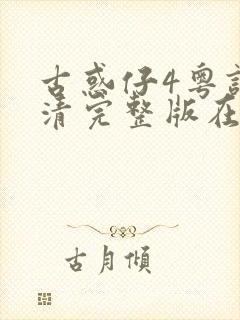 古惑仔4粤语
清完整版在
古月傾